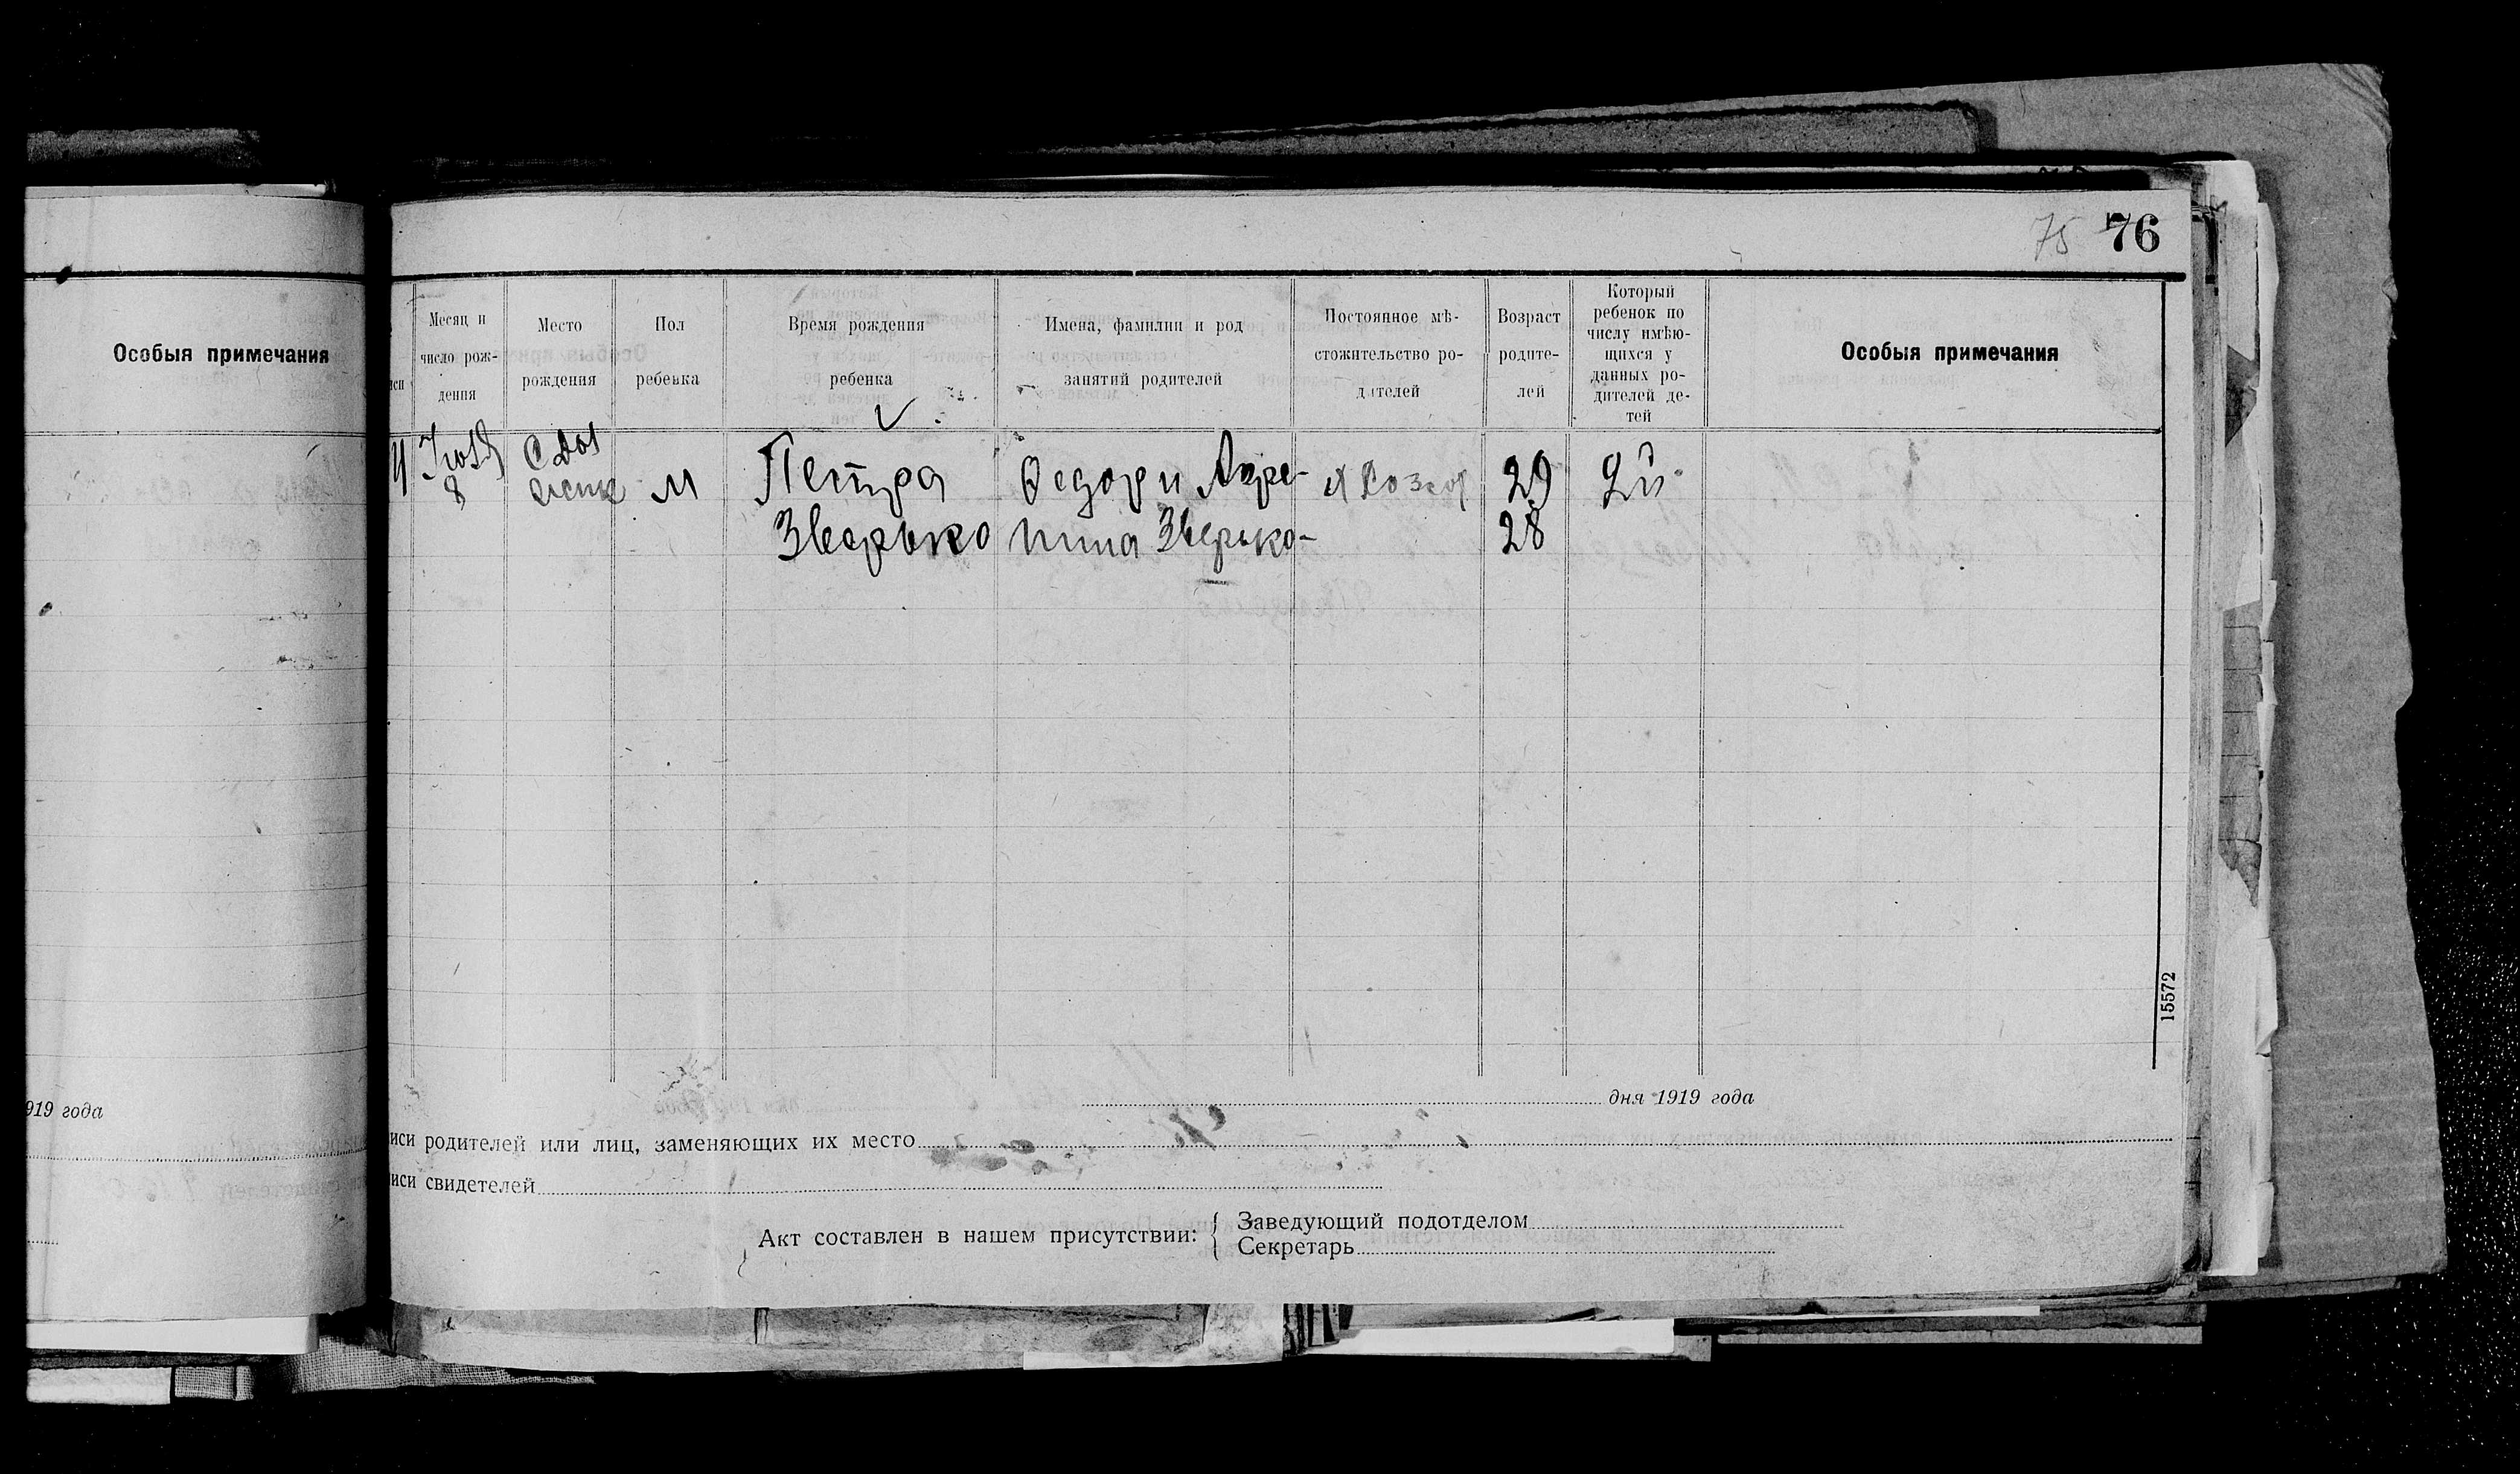 75 76
Особыя примечания
Месяц и число рож- дения
Место рождения
Пол ребенка
Время рождения ребенка
Имена, фамилии и род занятий родителей
Постоянное мѣ- стожительство ро- дителей
Возраст родите- лей
Который ребенок по числу имѣю- щихся у данных ро- дителей де- тей
Особыя примечания
8 М Петра Федор и Агре- 29 2й
Зверько пина Зверько- 28
15572
919 года
дня 1919 года
иси родителей или лиц, заменяющих их место
иси свидетелей
Акт составлен в нашем присутствии: { Заведующий подотделом
Секретарь